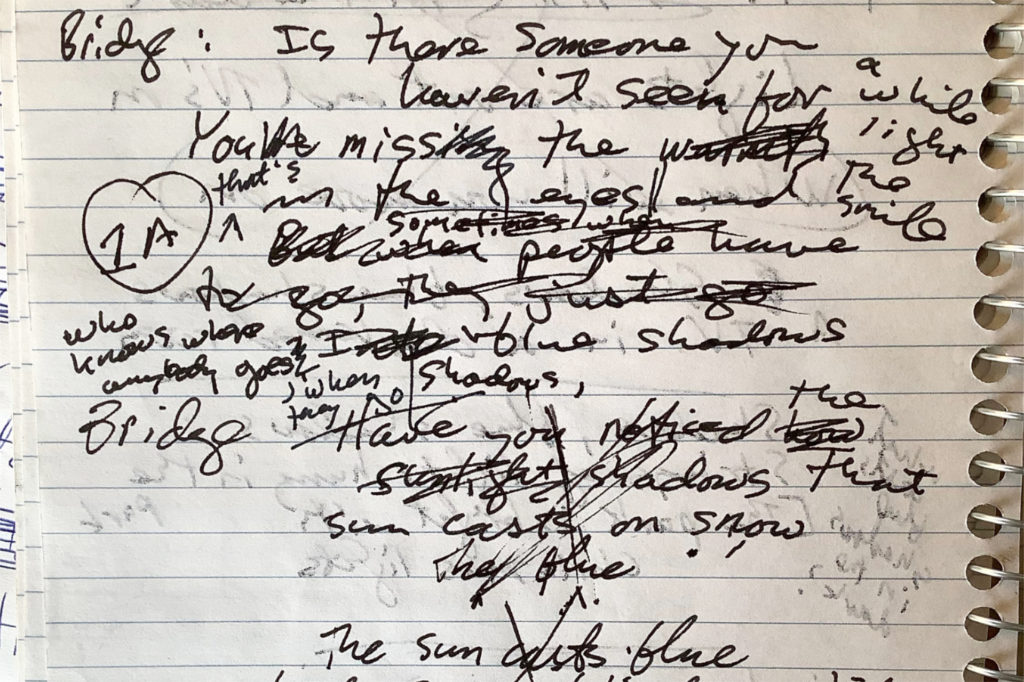 Bridge: Is there someone you
haven't seen for a while
You miss the light
that's in the eyes and the smile
1A
sometimes when
But when people have
to go, they just go
who knows where anybody goes
Into blue shadows
, when they go
shadows,
Bridge Have you noticed the
how
shadows That
sun casts on snow
They blue
The sun casts blue